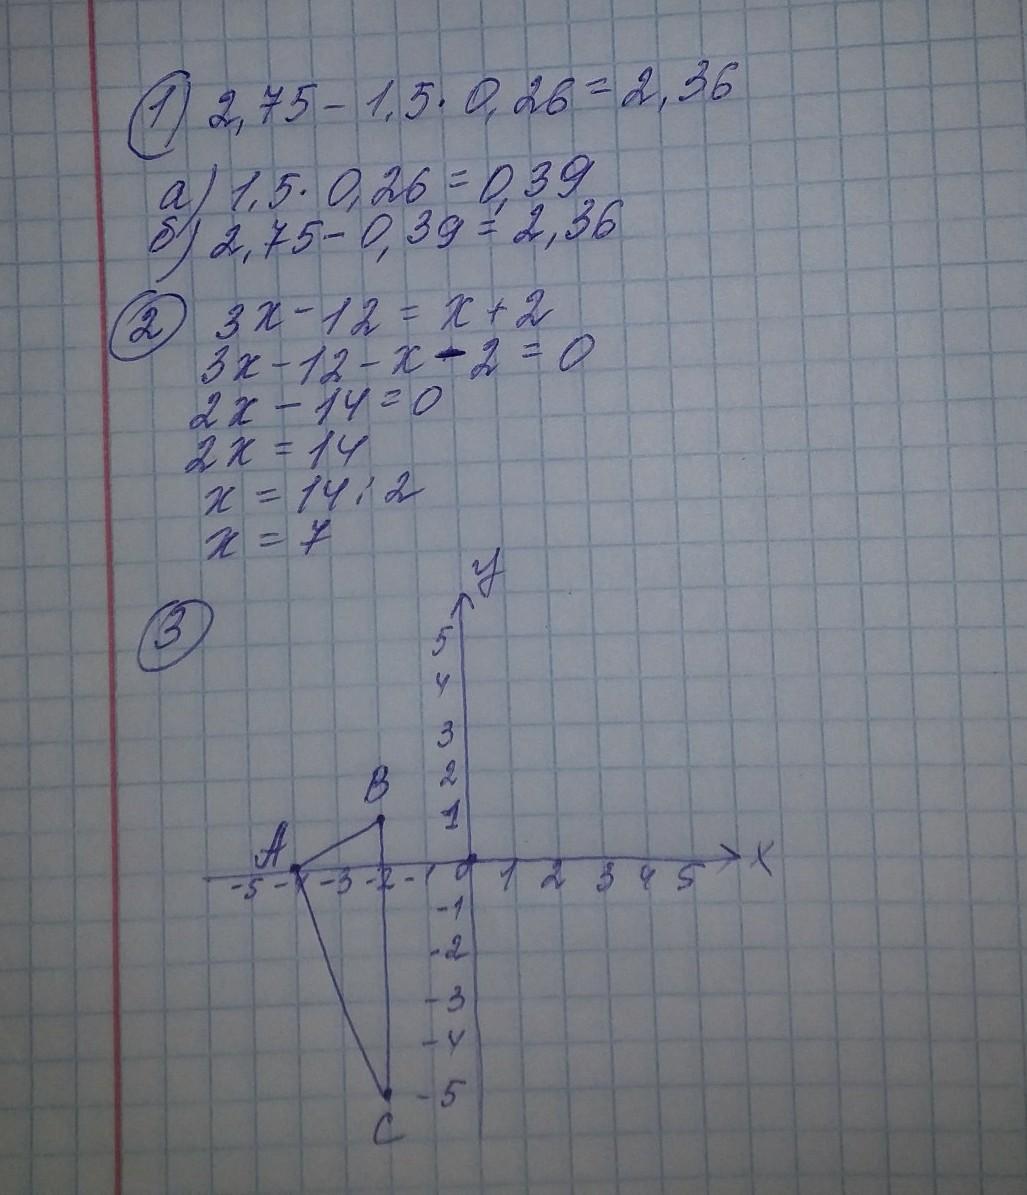 1) 2,75 - 1,5 · 0,26 = 2,36
а) 1,5 · 0,26 = 0,39
б) 2,75 - 0,39 = 2,36
2 3x - 12 = x + 2
3x - 12 - x - 2 = 0
2x - 14 = 0
2x = 14
x = 14 : 2
x = 7
3
y
5
4
3
B 2
1
A
-5 -4 -3 -2 -1 0 1 2 3 4 5 x
-1
-2
-3
-4
-5
C